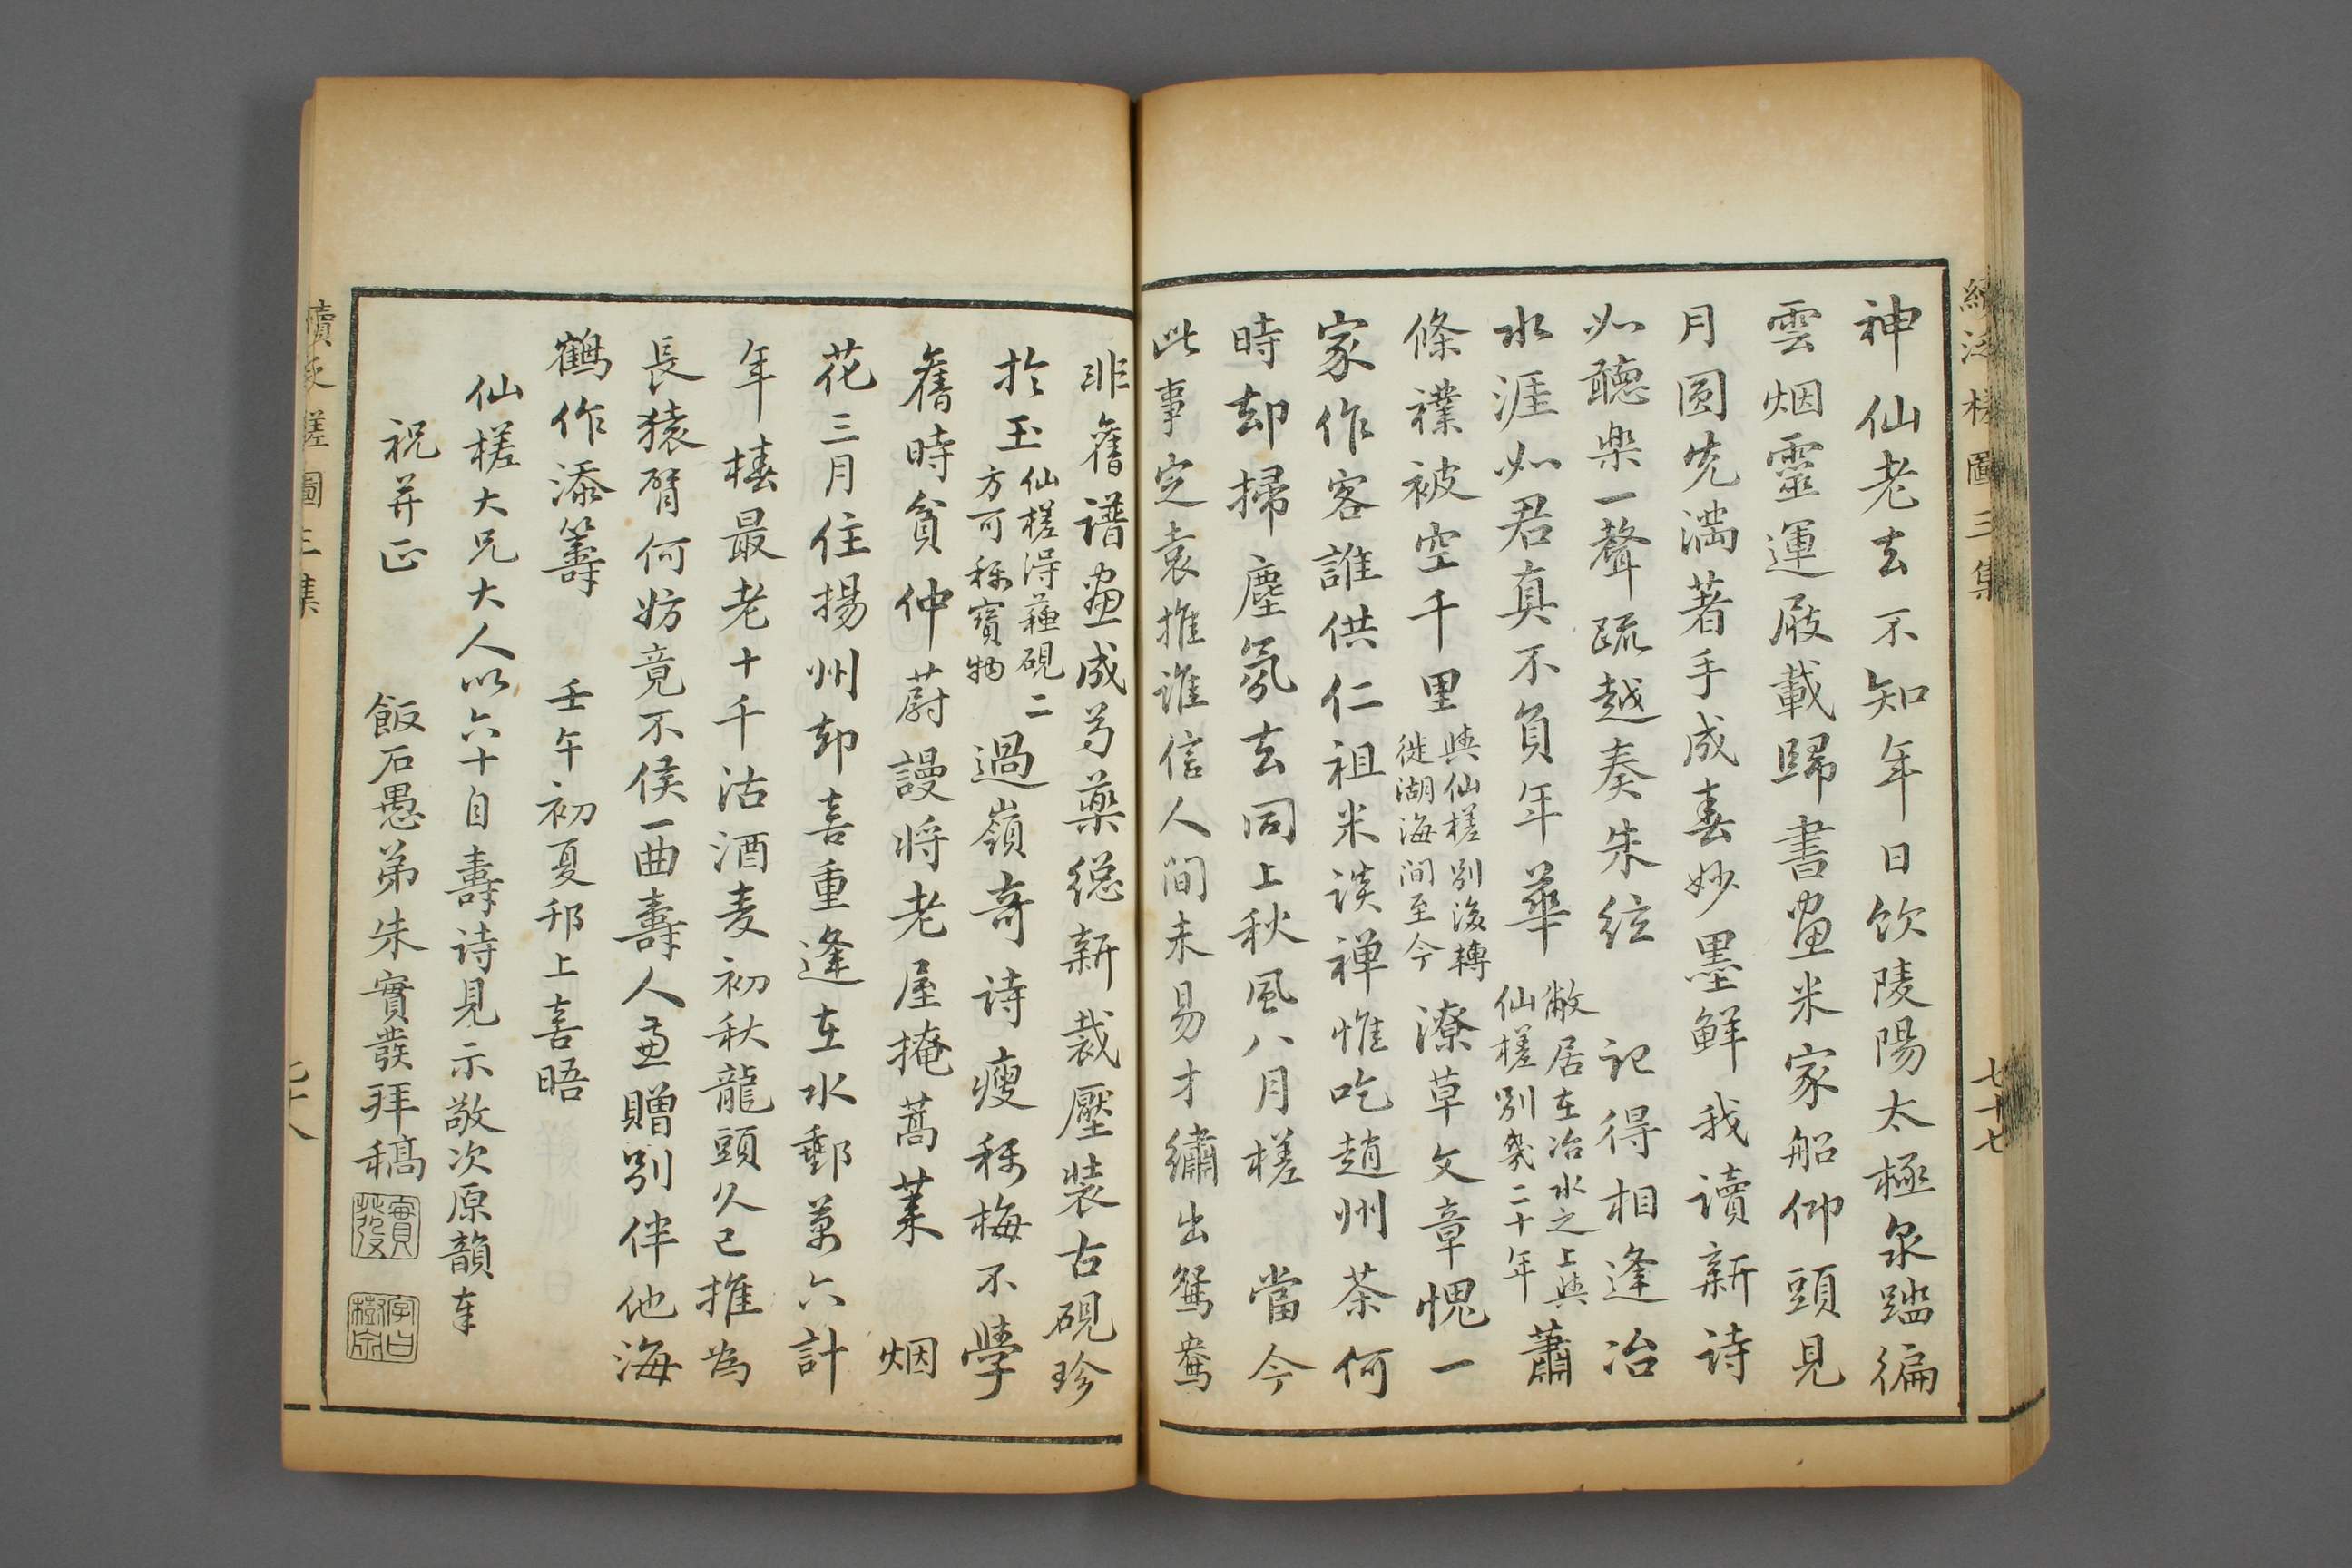 續泛槎圖三集
七十七
神仙老去不知年日飲陵陽太極泉踏徧
雲烟靈運屐載歸書畫米家船仰頭見
月圓先滿著手成春妙墨鮮我讀新詩
如聽樂一聲疏越奏朱絃 記得相逢冶
水涯如君真不負年華敝居在冶水之上與仙槎別幾二十年蕭
條襆被空千里與仙槎別後轉徙湖海間至今潦草文章愧一
家作客誰供仁祖米談禪惟吃趙州茶何
時却掃塵氛去同上秋風八月槎 當今
此事定袁推誰信人間未易才繡出鴛鴦
非舊譜畫成芍藥總新裁壓裝古硯珍
於玉仙槎得蘓硯二方可稱寶物過嶺奇詩瘦稱梅不學
舊時貧仲蔚謾將老屋掩蒿萊 烟
花三月住揚州却喜重逢在水郵萬六計
年椿最老十千沽酒麦初秋龍頭久已推為
長猿臂何妨竟不侯一曲壽人兼贈別伴他海
鶴作添籌 壬午初夏邗上喜晤
仙槎大兄大人以六十自壽詩見示敬次原韻奉
祝并正
飯石愚弟朱實發拜稿
實發
字曰樹宗
續泛槎圖三集
七十八